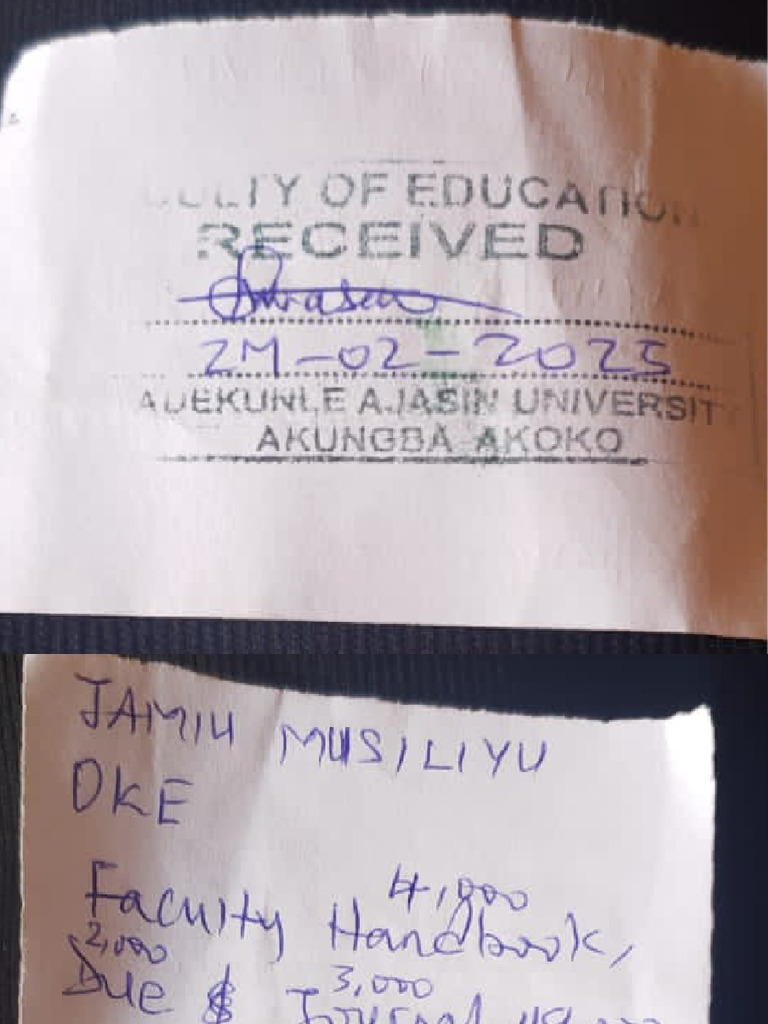 FACULTY OF EDUCATION
RECEIVED
24-02-2025
ADEKUNLE AJASIN UNIVERSITY
AKUNGBA AKOKO
JAMIU MUSILIYU
OKE
4,000
Faculty Handbook,
2,000 3,000
Due $ Journal